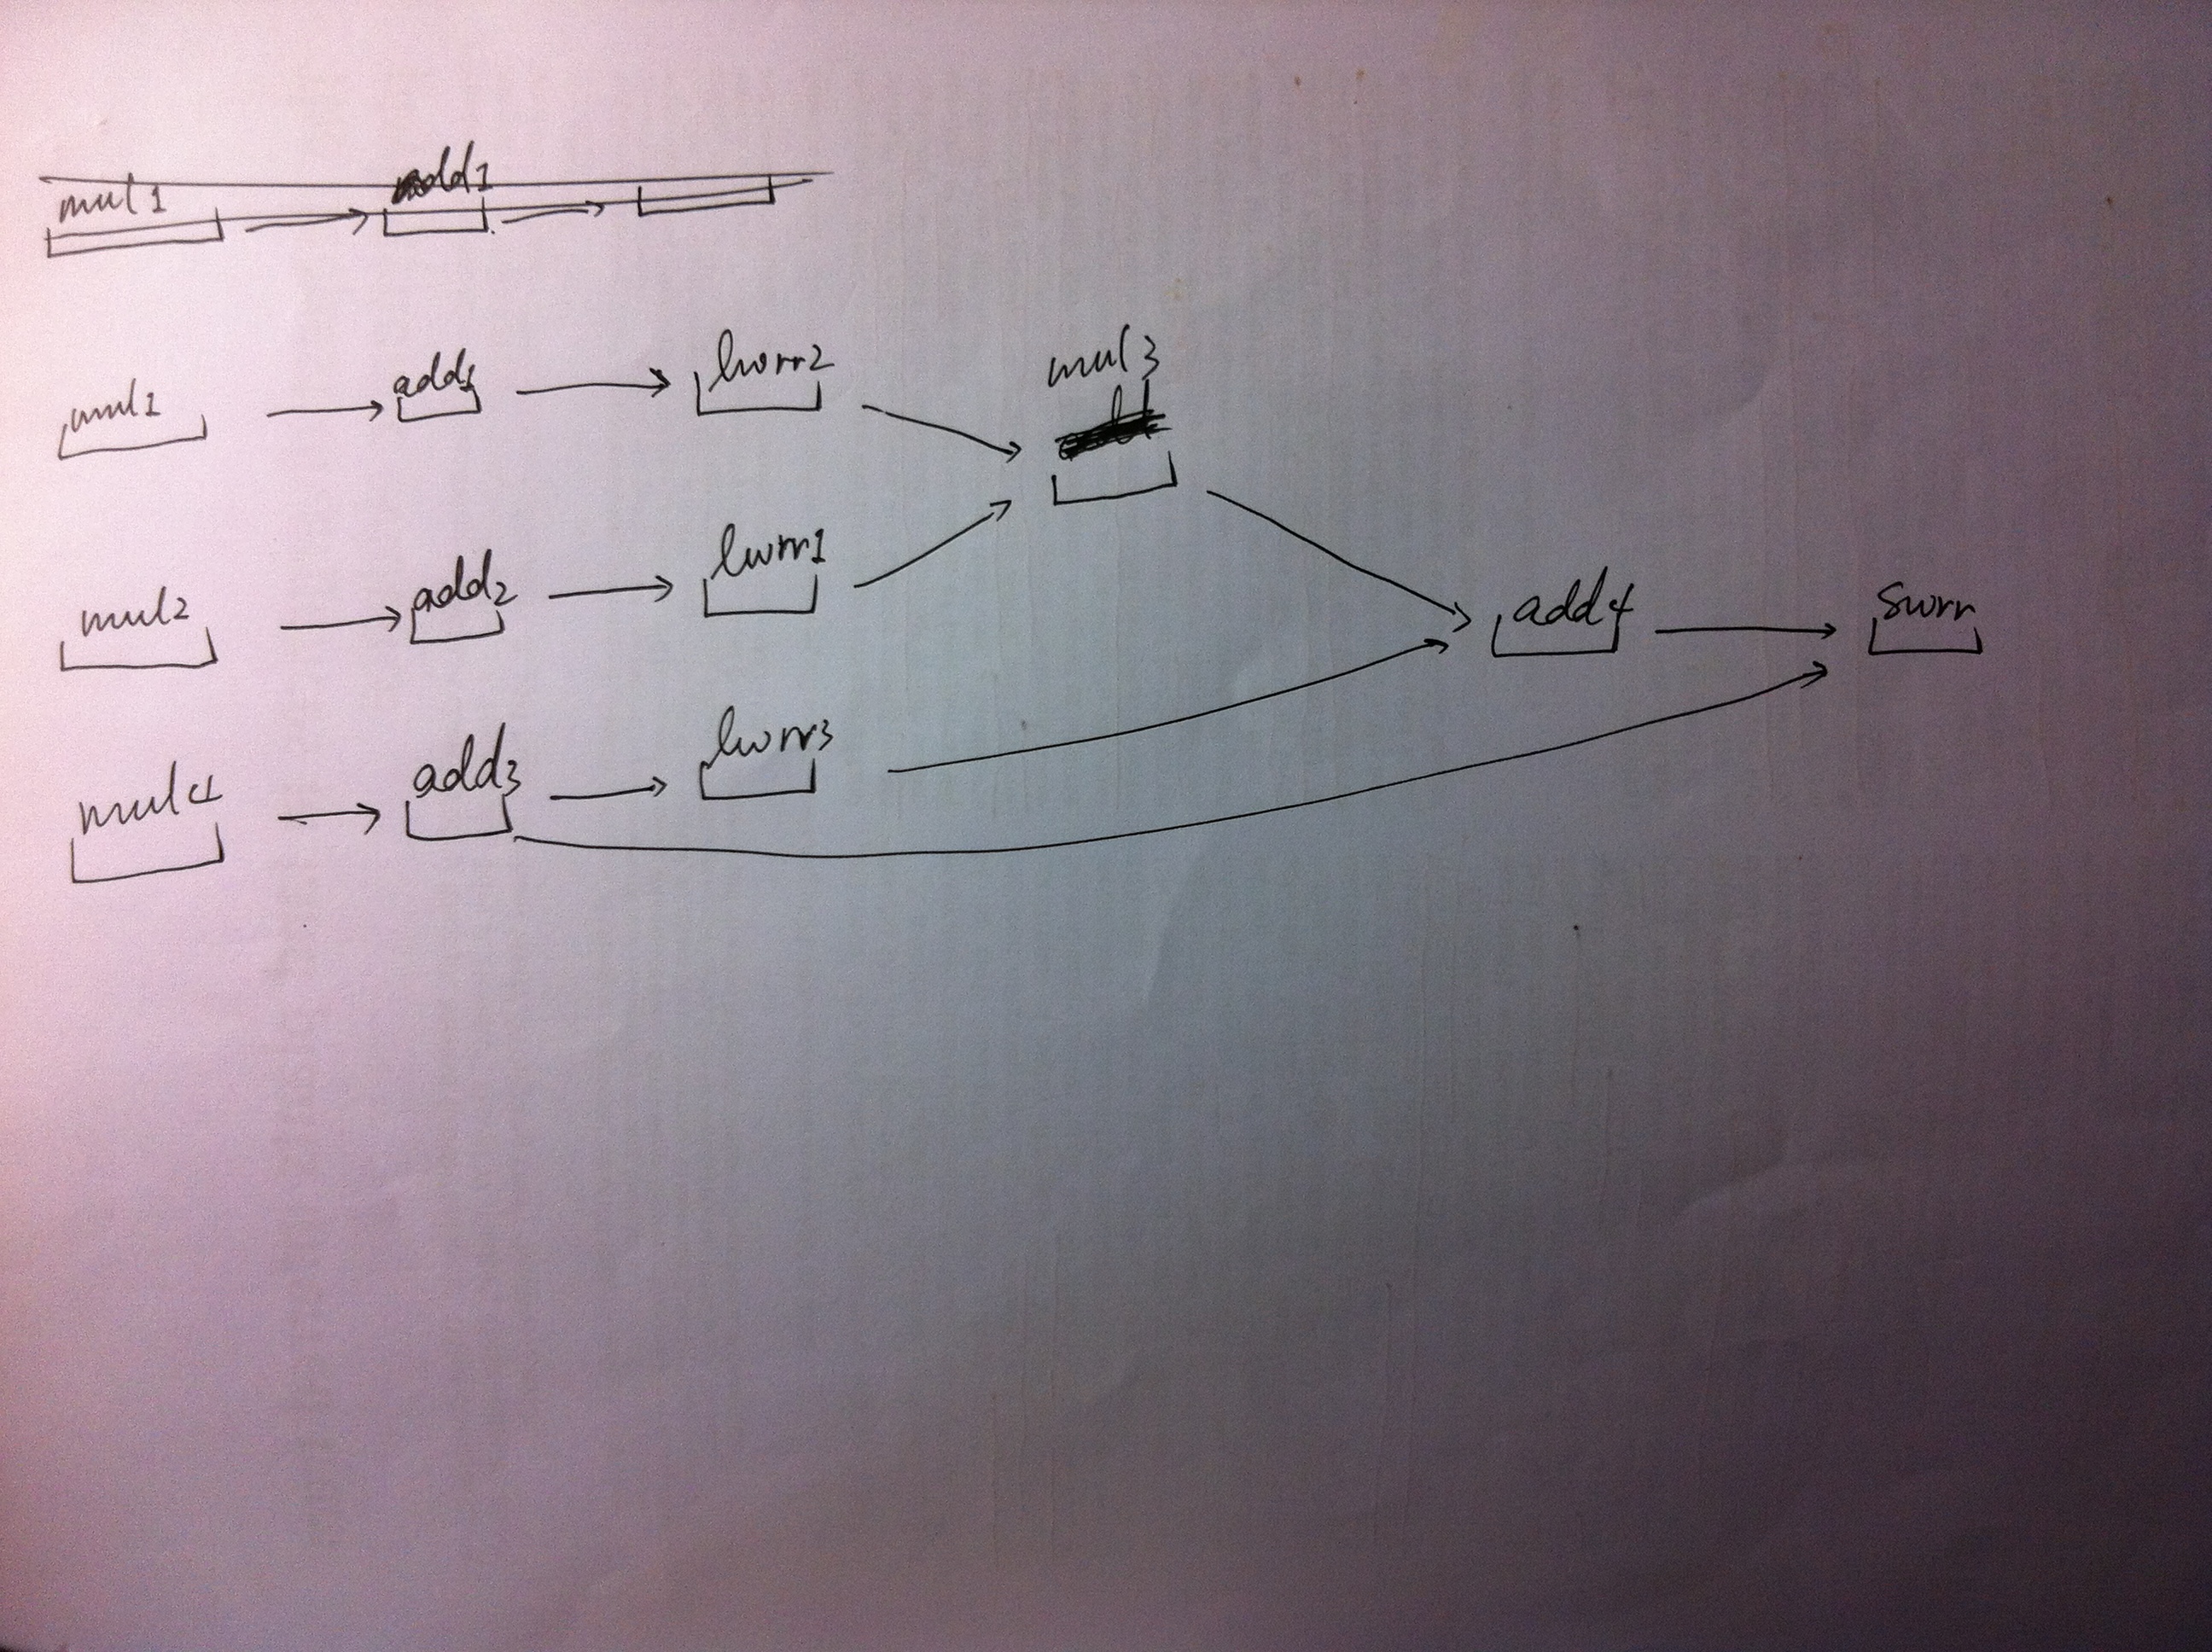 mul1 add1
mul1 add1 lwrr2 mul3
mul2 add2 lwrr1 add4 swrr
mul4 add3 lwrr3